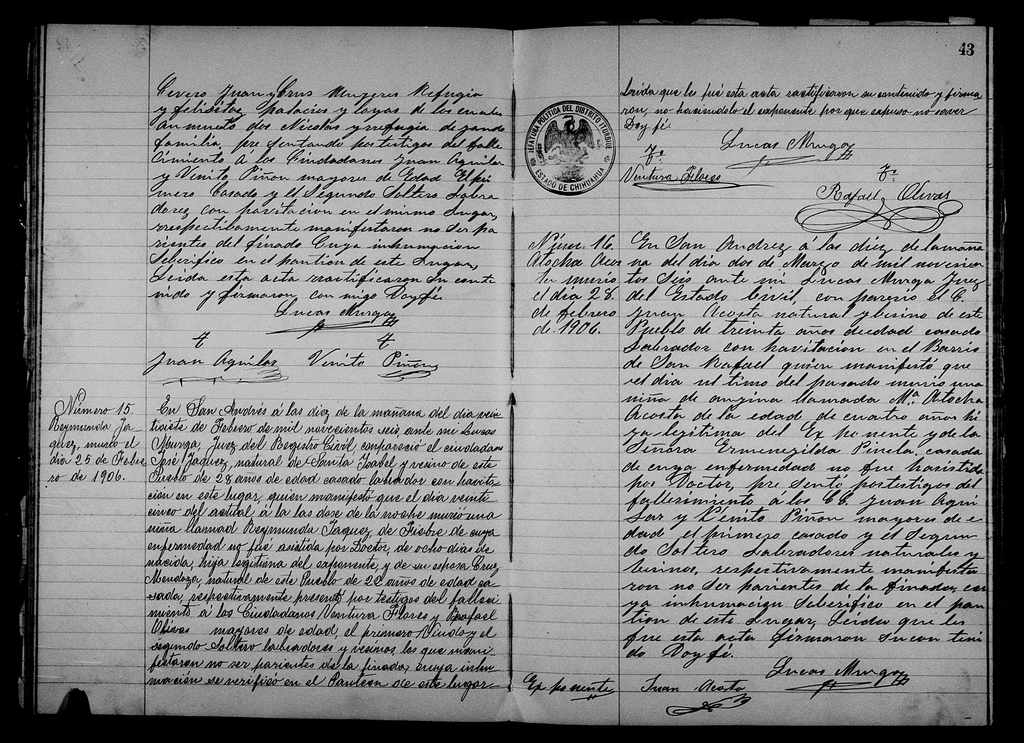 Cevero Juan y Crus Mugeres Refugio
y felisitas Palacios y loyas de los cuales
aumento dos Nicolas y refugia dejando
familia, presentando por testigos del falle
cimiento a los Ciudadanos Juan Aguilar
y Venito Piñon mayores de Edad El pri
mero Casado y el Segundo Soltero Labra
dores con havitacion en el mismo Lugar,
rrespectibamente manifestaron no ser pa
rientes del finado Cuya inhumacion
Seberifico en el pantion de este Lugar,
Leida esta acta rractificaron su conte
nido y firmaron con migo Doyfé
Lucas Murga
Juan Aguilar Venito Piñon
Número 15.
Reymunda Ja
quez, murió el
día 25 de Febre
ro de 1906.
En San Andrés á las diez de la mañana del dia vein
tisiete de Febrero de mil novecientos seis, ante mi Lucas
Murga, Juez del Registro Civil, compareció el ciudadano
José Jaquez, natural de Santa Isabel y vecino de este
Pueblo de 28 años de edad casado labrador con havita
ción en este lugar, quien manifestó que el dia veinte
cinco del actual á la las doce de la noche murió una
niña llamad Reymunda Jaquez de Fiebre de cuya
enfermedad no fué asistida por Doctor, de ocho dias de
nacida, hija legitima del exponente y de su esposa Cruz
Mendoza, natural de este Pueblo de 22 años de edad ca
sada, respectivamente presentó por testigos del falleci
miento á los Ciudadanos Ventura Flores y Rafael
Olivas mayores de edad, el primero Viudo y el
segundo Soltero labradores y vecinos, los que mani
festaron no ser parientes de la finada, cuya inhu
mación se verificó en el Panteon de este lugar
43
Leida que les fué esta acta ractificaron su contenido y firma
ron, no haciendolo el exponente por que expuso no saver
Doy fé
JEFATURA POLITICA DEL DISTRITO ITURBIDE
ESTADO DE CHIHUAHUA
Lucas Murga
Ventura Flores
Rafael Olivas
Númr. 16.
Atocha Acos
ta murio
el dia 28.
de febrero
de 1906.
En San Andrez á las diez de la maña
na del dia dos de Marzo de mil novecien
tos Seis ante mi Lucas Murga Juez
del Estado Civil, con parecio el C.
Juan Acosta natural y besino de este
Pueblo de treinta años de edad casado
Labrador con havitacion en el Barrio
de San Rafael quien manifestó que
el dia ultimo del pasado murio una
niña de angina llamada Ma. Atocha
Acosta de la edad, de cuatro años hi
ja legitima del Exponente y de la
Sinora Ermenegilda Pinela, casada
de cuya enfermedad no fue hasistida
por Doctor, pre sento por testigos del
fallesimiento á los CC. Juan Agui
lar y Venito Piñon mayores de e
dad, el primero casado y el Segun
do Soltero Labradores naturales y
besinos, respectivamente manifesta
ron no ser parientes de la finada, cu
ya inhumacion Seberifico en el pan
tion de este Lugar, Leida que les
fue esta acta firmaron su con teni
do Doy fé.
Lucas Murga
Exponente Juan Acosta